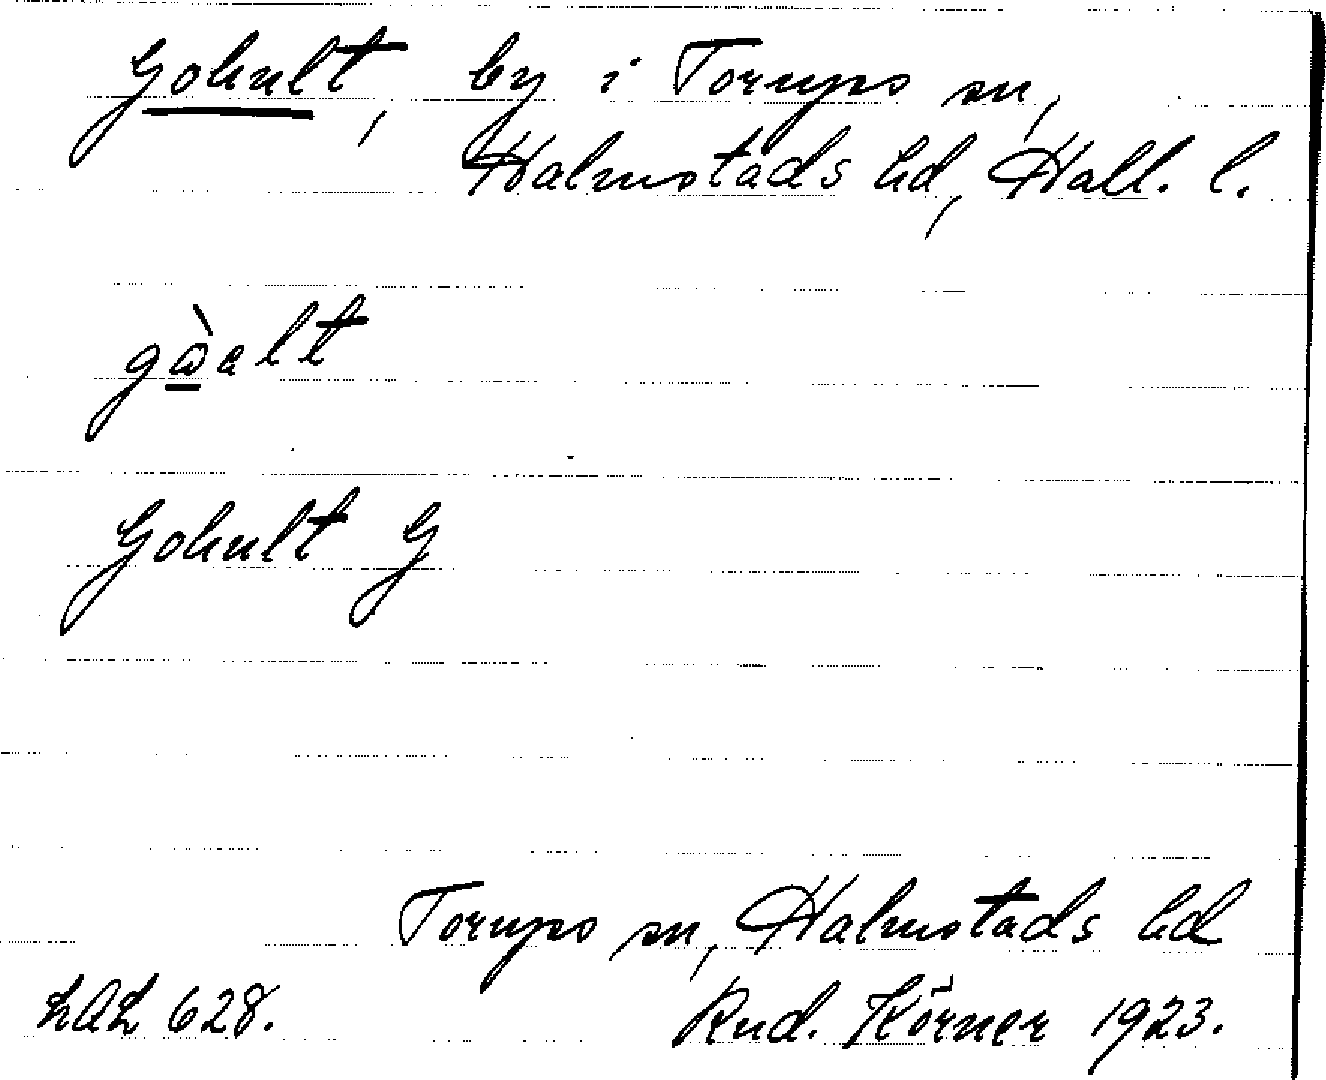 Gohult, by i Torups sn,
Halmstads hd, Hall. l.
gàalt
Gohult G
Torups sn, Halmstads hd
LAL 628. Rud. Körner 1923.